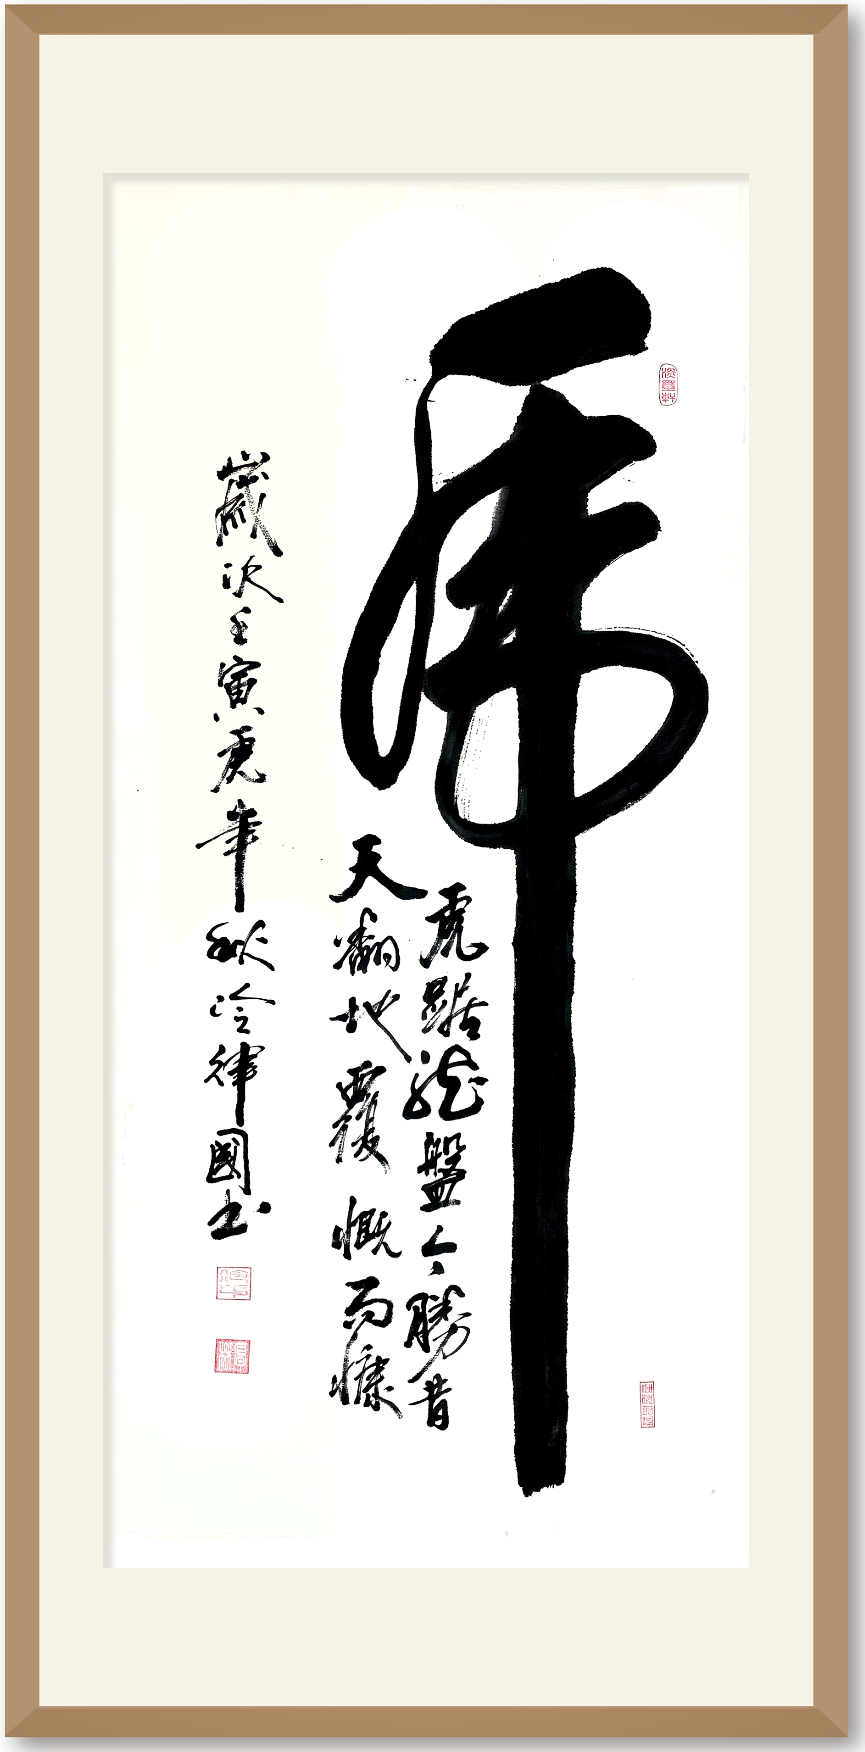 虎
虎踞龍盤今勝昔
天翻地覆慨而慷
歲次壬寅虎年秋冷律國书